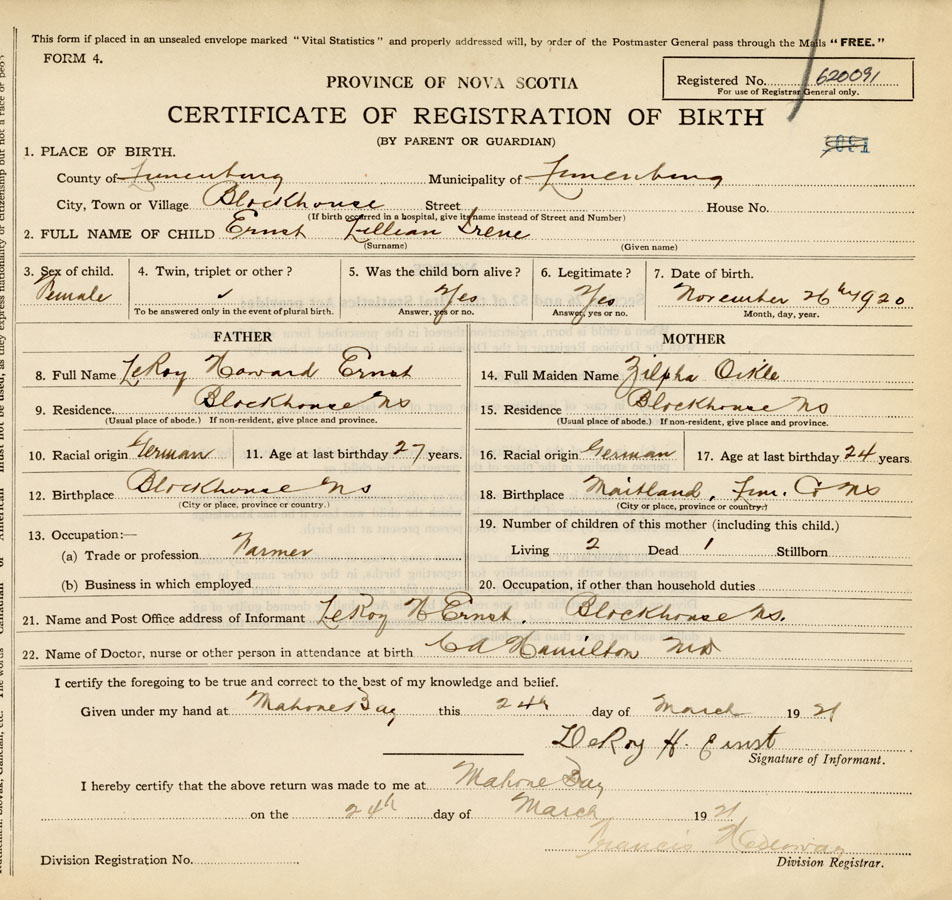 This form if placed in an unsealed envelope marked "Vital Statistics" and properly addressed will, by order of the Postmaster General pass through the Mails "FREE."
FORM 4.
Registered No. 620091
For use of Registrar General only.
PROVINCE OF NOVA SCOTIA
CERTIFICATE OF REGISTRATION OF BIRTH
(BY PARENT OR GUARDIAN)
1. PLACE OF BIRTH.
County of Lunenburg Municipality of Lunenburg
City, Town or Village Blockhouse Street House No.
(If birth occurred in a hospital, give its name instead of Street and Number)
2. FULL NAME OF CHILD Ernst Lillian Irene
(Surname) (Given name)
3. Sex of child. 4. Twin, triplet or other? 5. Was the child born alive? 6. Legitimate? 7. Date of birth.
Female ✓ Yes Yes November 26th 1920
To be answered only in the event of plural birth. Answer, yes or no. Answer, yes or no. Month, day, year.
FATHER
8. Full Name LeRoy Howard Ernst
9. Residence Blockhouse NS
(Usual place of abode.) If non-resident, give place and province.
10. Racial origin German 11. Age at last birthday 27 years.
12. Birthplace Blockhouse NS
(City or place, province or country.)
13. Occupation:—
(a) Trade or profession Farmer
(b) Business in which employed
MOTHER
14. Full Maiden Name Zilpha Oikle
15. Residence Blockhouse NS
(Usual place of abode.) If non-resident, give place and province.
16. Racial origin German 17. Age at last birthday 24 years.
18. Birthplace Maitland, Lun. Co NS
(City or place, province or country.)
19. Number of children of this mother (including this child.)
Living 2 Dead 1 Stillborn
20. Occupation, if other than household duties
21. Name and Post Office address of Informant LeRoy H Ernst. Blockhouse NS.
22. Name of Doctor, nurse or other person in attendance at birth CA Hamilton MD
I certify the foregoing to be true and correct to the best of my knowledge and belief.
Given under my hand at Mahone Bay this 24th day of March 1921
LeRoy H. Ernst
Signature of Informant.
I hereby certify that the above return was made to me at Mahone Bay
on the 24th day of March 1921
Francis
Division Registration No. Division Registrar.